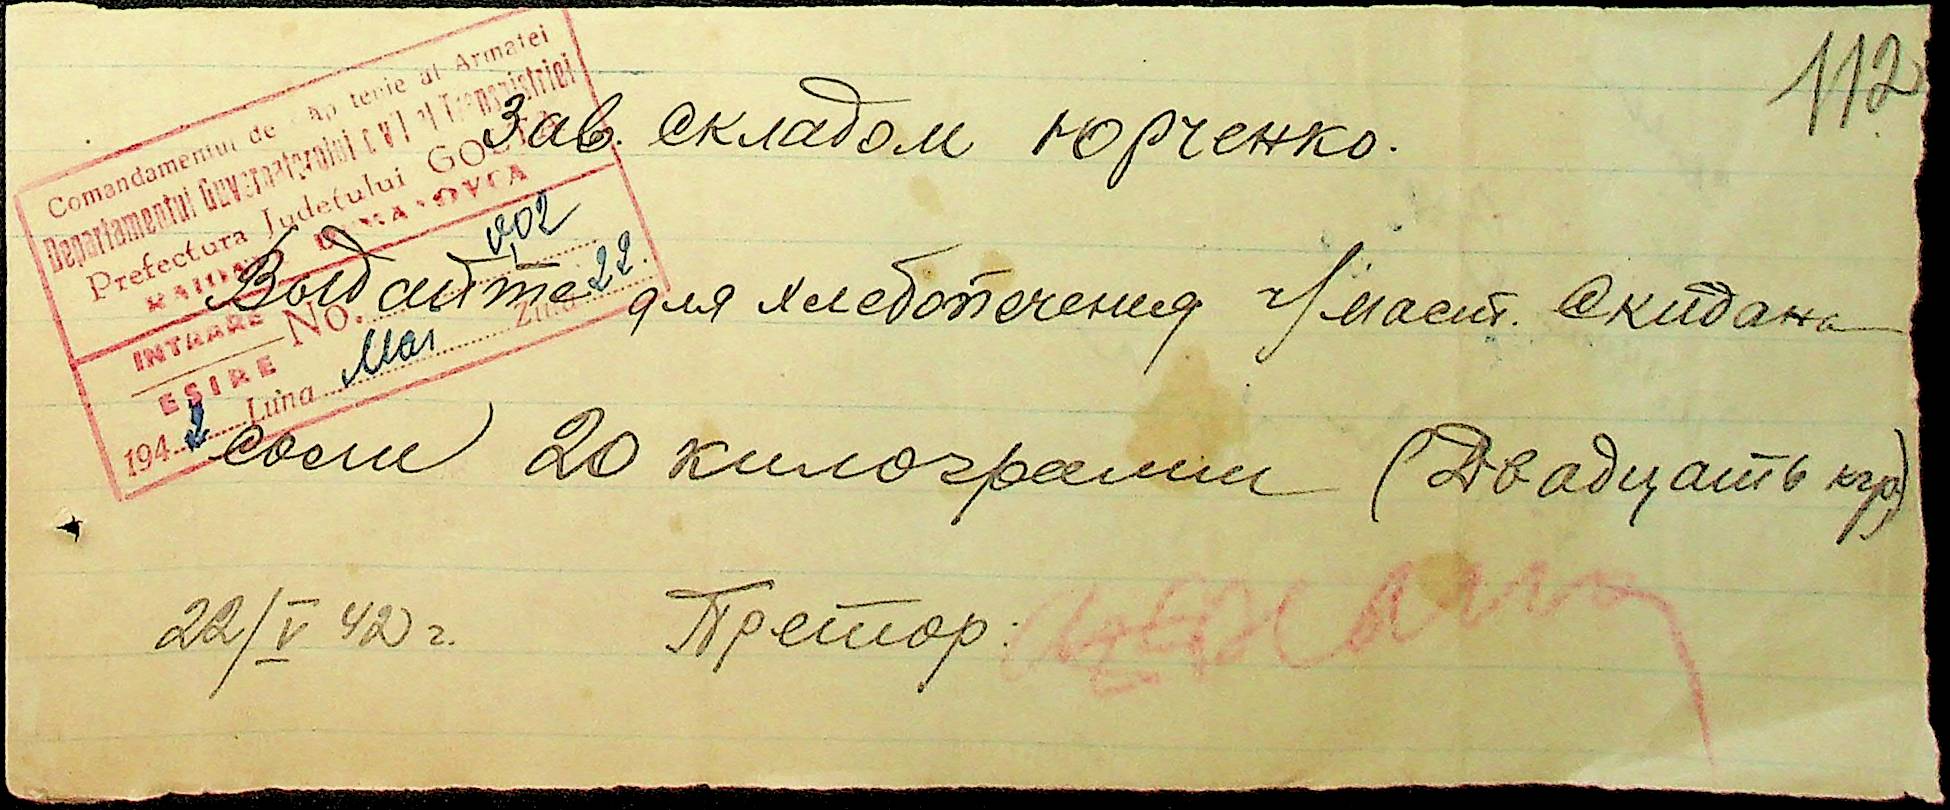 112
Comandamentul de Căpetenie al Armatei
Departamentul Guvernatorului civil al Transnistriei
Prefectura Județului GOLTA
RAIONUL DOMANOVCA
INTRARE
EȘIRE
No. 22.
1942 Luna Mai Ziua
Зав. складом Юрченко.
Выдайте для хлебопечения ч/маст. Скидана
соли 20 килограмм (Двадцать кгр)
22/V 42 г. Претор: